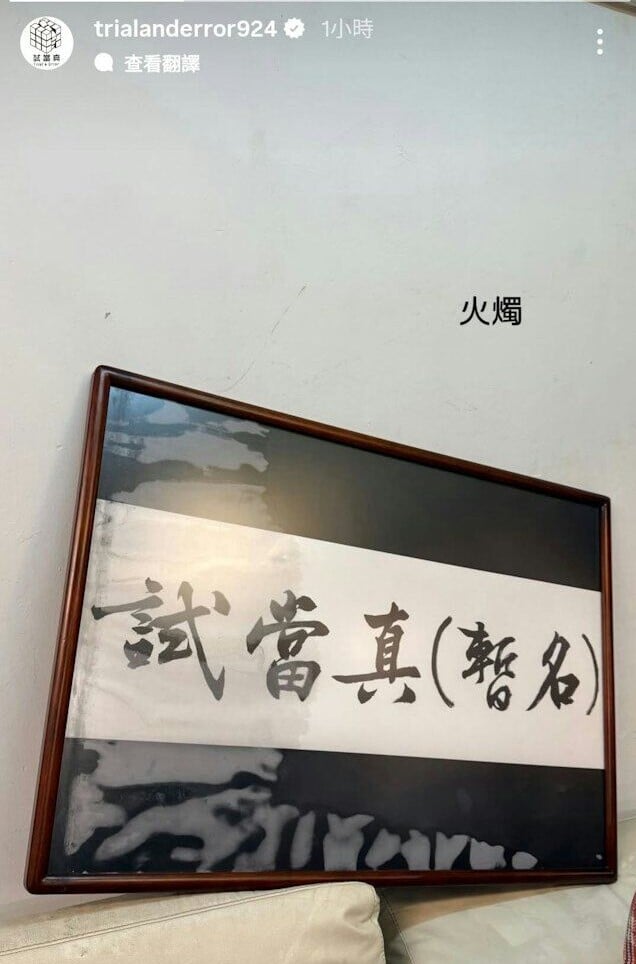 試當真
TRIAL & ERROR
trialanderror924 1小時
查看翻譯
火燭
試當真(暫名)